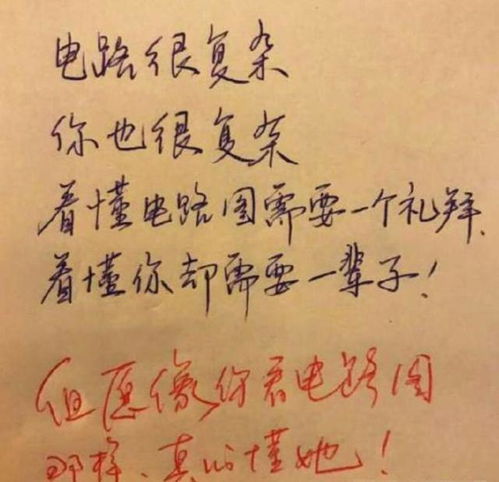 电路很复杂
你也很复杂
看懂电路图需要一个礼拜、
看懂你却需要一辈子！
但愿像你看电路图
那样、真的懂她！